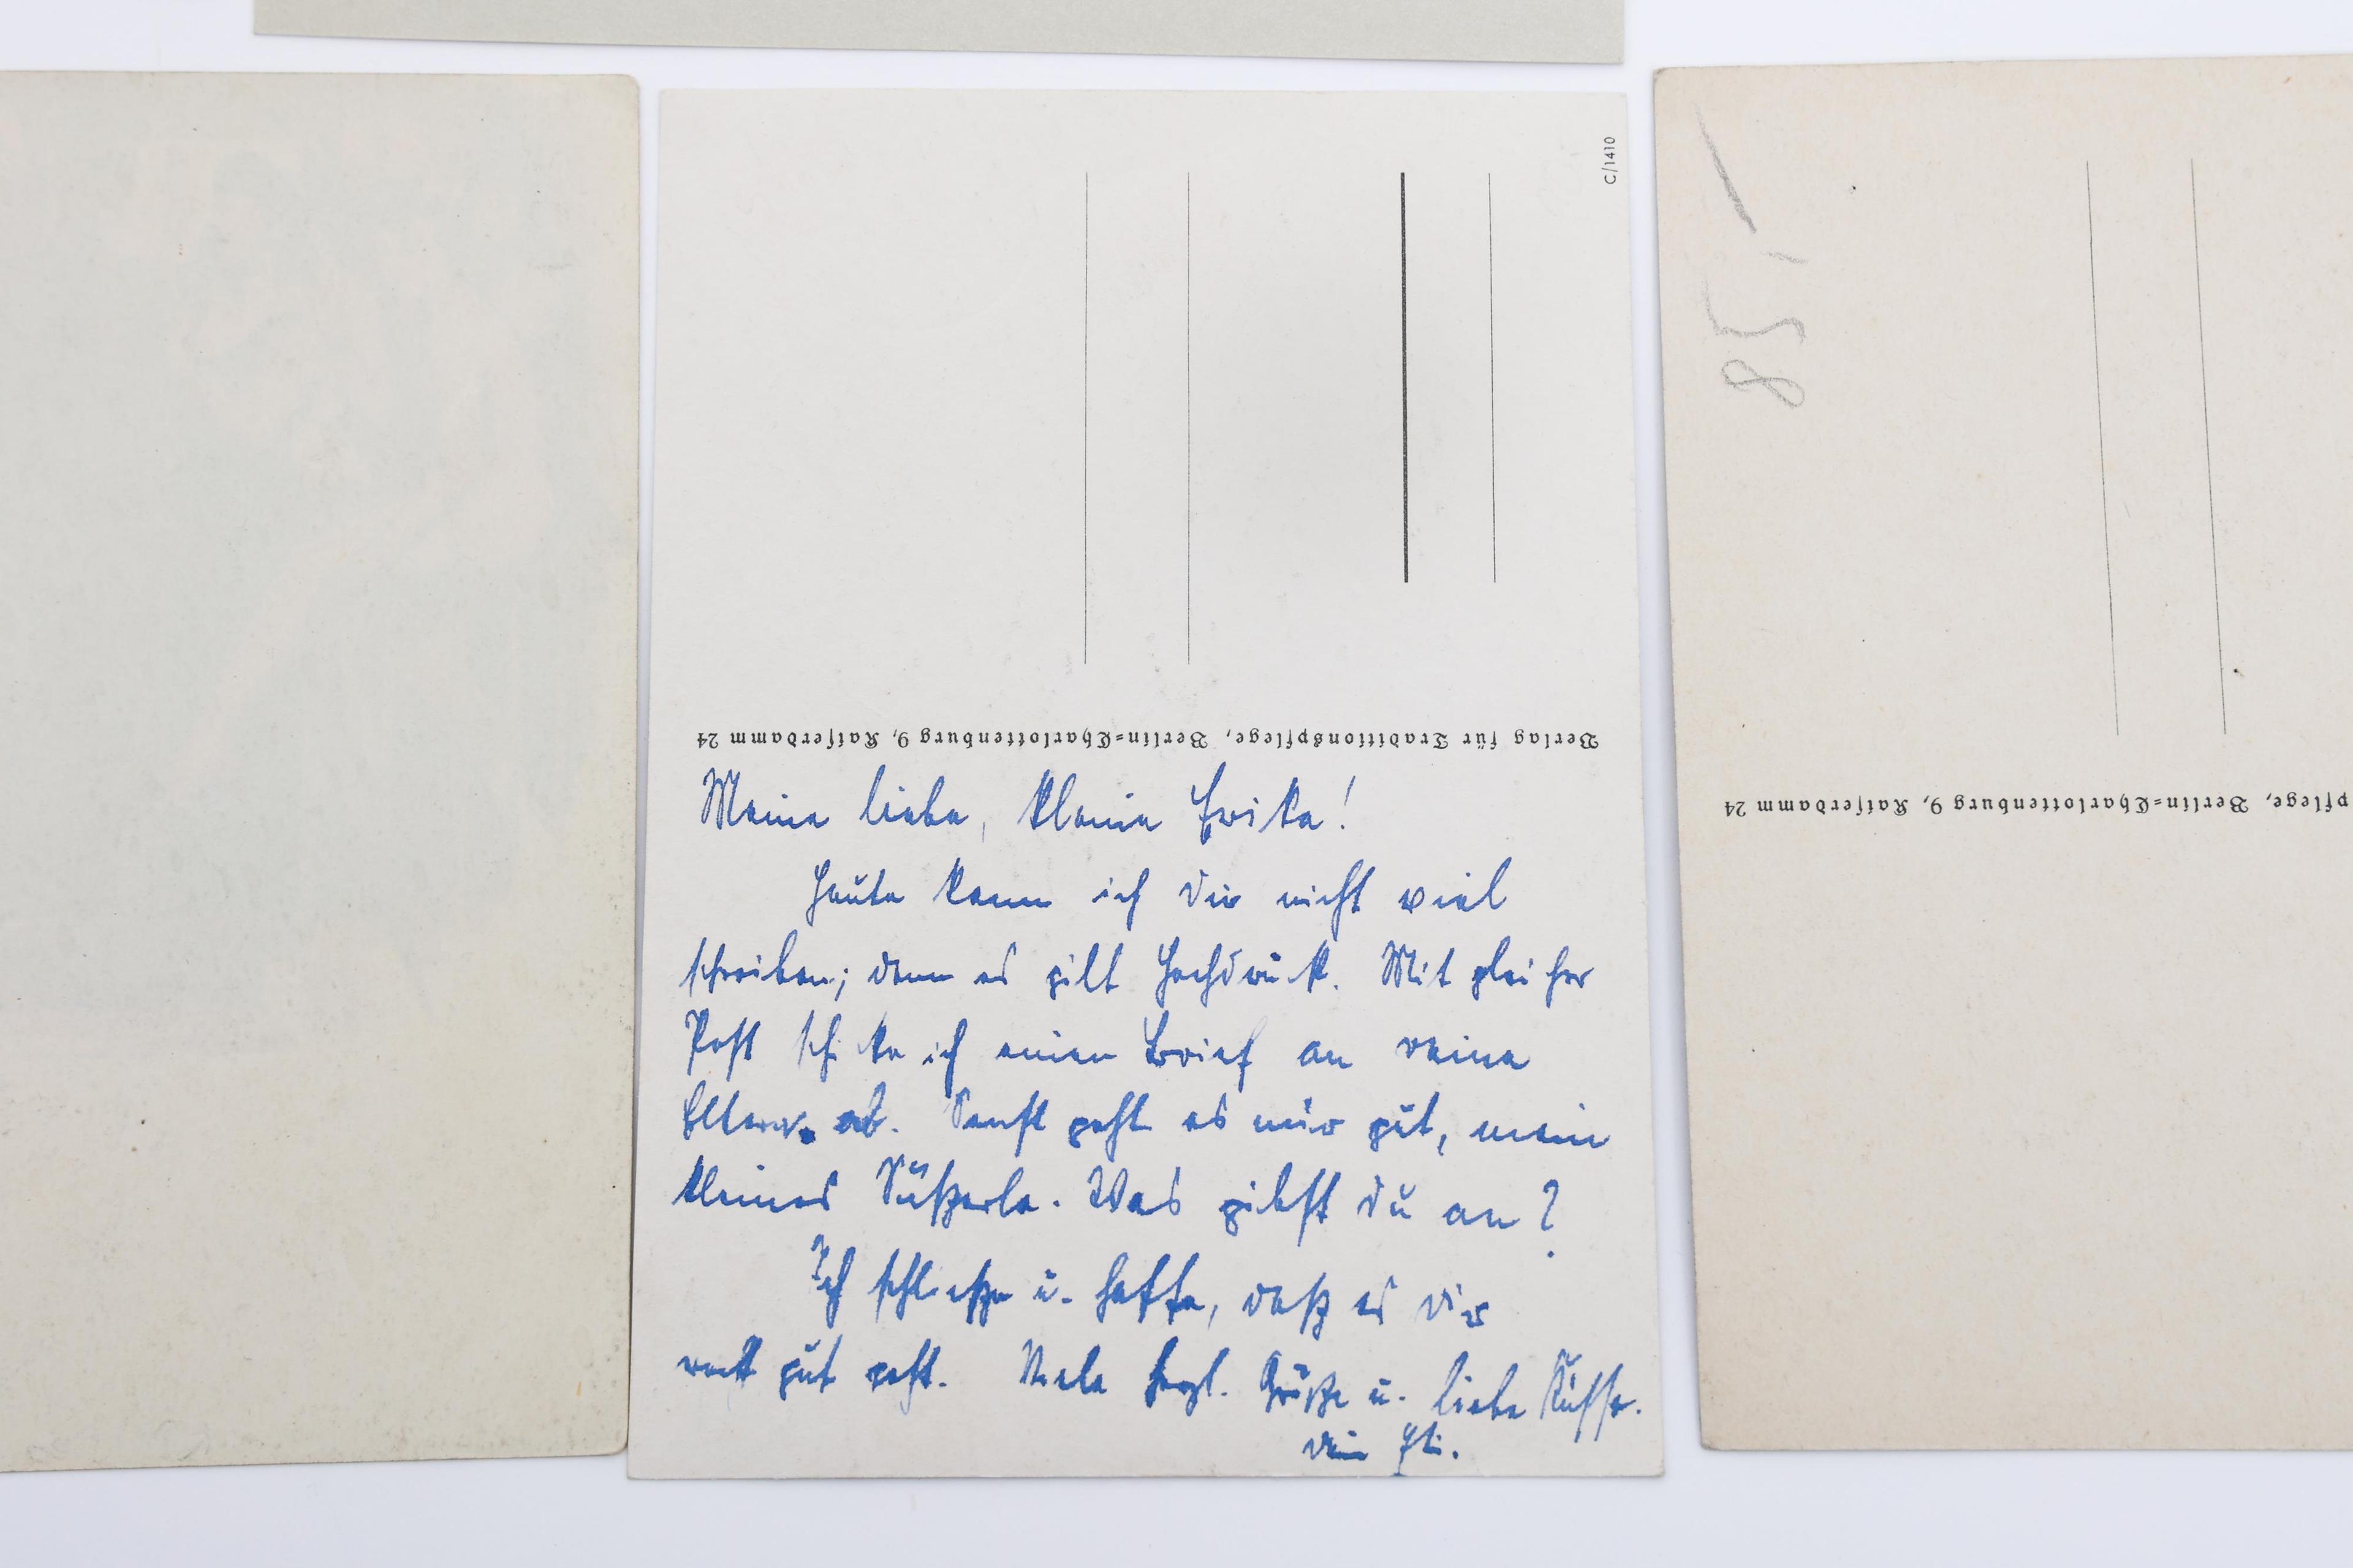 C/1410
Verlag für Traditionspflege, Berlin=Charlottenburg 9, Kaiserdamm 24
Meine liebe, kleine Erika!
Heute kann ich Dir nicht viel
schreiben; denn es gilt Hochdruck. Mit gleicher
Post schicke ich einen Brief an Deine
Eltern ab. Sonst geht es mir gut, mein
kleines Süßerle. Was gibst Du an?
Ich schließe u. hoffe, daß es Dir
recht gut geht. Viele herzl. Grüße u. liebe Küsse.
Dein
85,-
pflege, Berlin=Charlottenburg 9, Kaiserdamm 24